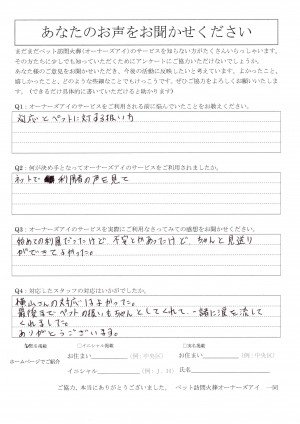 あなたのお声をお聞かせください
まだまだペット訪問火葬(オーナーズアイ)のサービスを知らない方がたくさんいらっしゃいます。
その方たちに少しでも知っていただくためにアンケートにご協力いただけないでしょうか。
あなた様のご意見をお聞かせいただき、今後の活動に反映したいと考えています。よかったこと、
嬉しかったこと、どのような些細なことでもけっこうです。ぜひご協力をよろしくお願いいたします。
(できるだけ具体的に書いていただけると助かります)
Q1:オーナーズアイのサービスをご利用される前に悩んでいたことをお教えください。
対応とペットに対する扱い方
Q2:何が決め手となってオーナーズアイのサービスをご利用されましたか。
ネットで 利用者の声を見て
Q3:オーナーズアイのサービスを実際にご利用なさってみての感想をお聞かせください。
始めての利用だったけど 不安とかあったけど ちゃんと見送り
ができてよかった。
Q4:対応したスタッフの対応はいかがでしたか。
横山さんの対応はよかった。
最後までペットの扱いもちゃんとしてくれて、一緒に涙を流して
くれました。
ありがとうございます。
匿名掲載 □イニシャル掲載 □実名掲載
ホームページでご紹介
お住まい (例:中央区) お住まい (例:中央区)
イニシャル (例:J.H) 氏名
ご協力、本当にありがとうございました。 ペット訪問火葬オーナーズアイ 一同